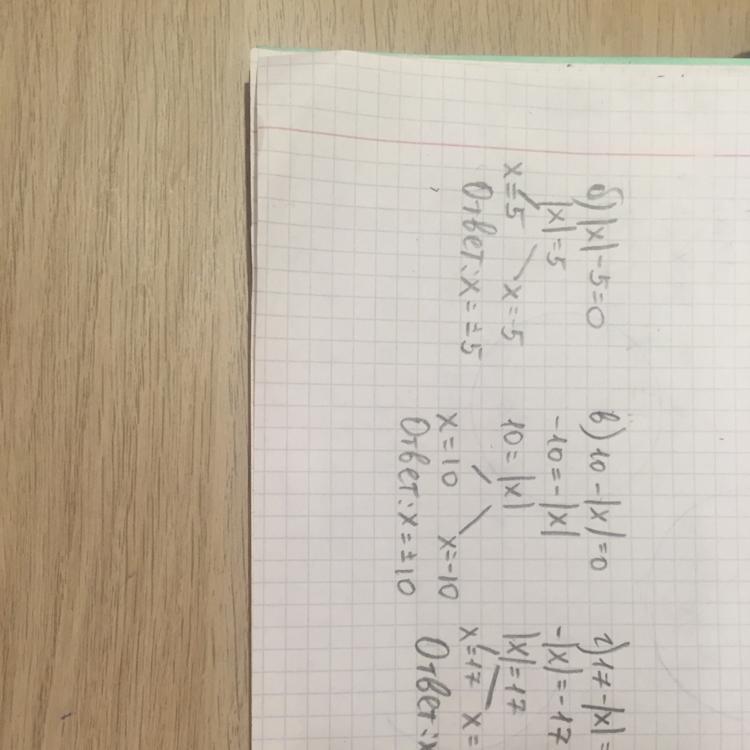 б) |x| - 5 = 0
|x| = 5
x = 5 x = -5
Ответ: x = ±5
в) 10 - |x| = 0
-10 = -|x|
10 = |x|
x = 10 x = -10
Ответ: x = ±10
г) 17 - |x| =
-|x| = -17
|x| = 17
x = 17 x =
Ответ: x